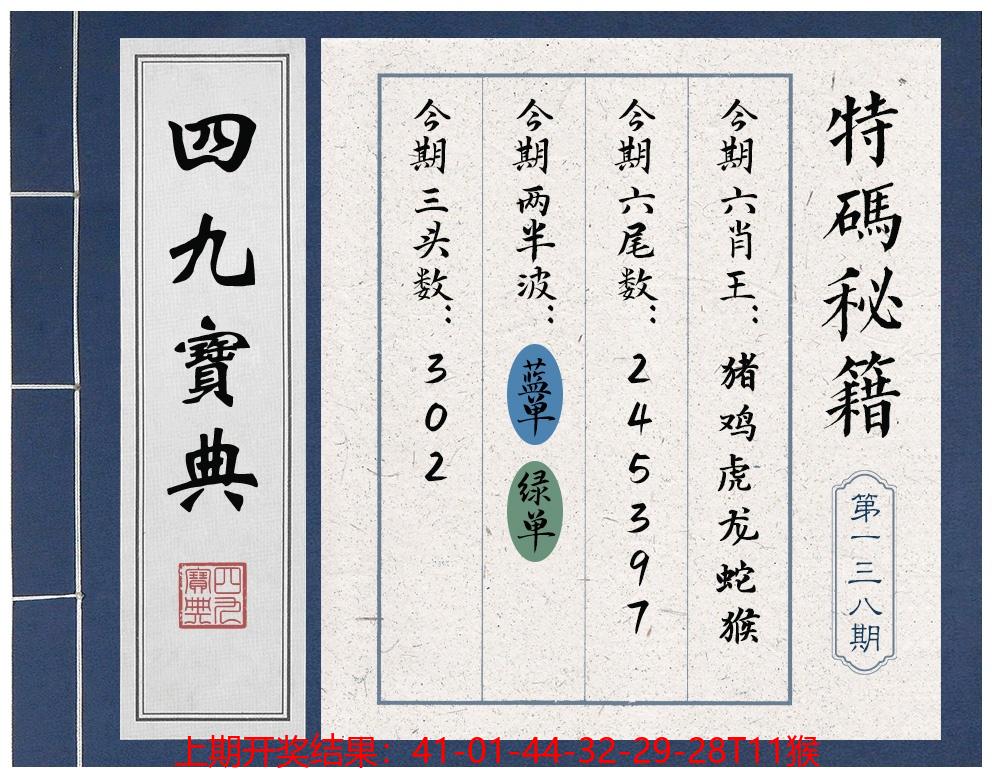 特碼秘籍
第一三八期
今期六肖王：猪鸡虎龙蛇猴
今期六尾数：245397
今期两半波：蓝单 绿单
今期三头数：302
四九寶典
四九寶典
上期开奖结果：41-01-44-32-29-28T11猴